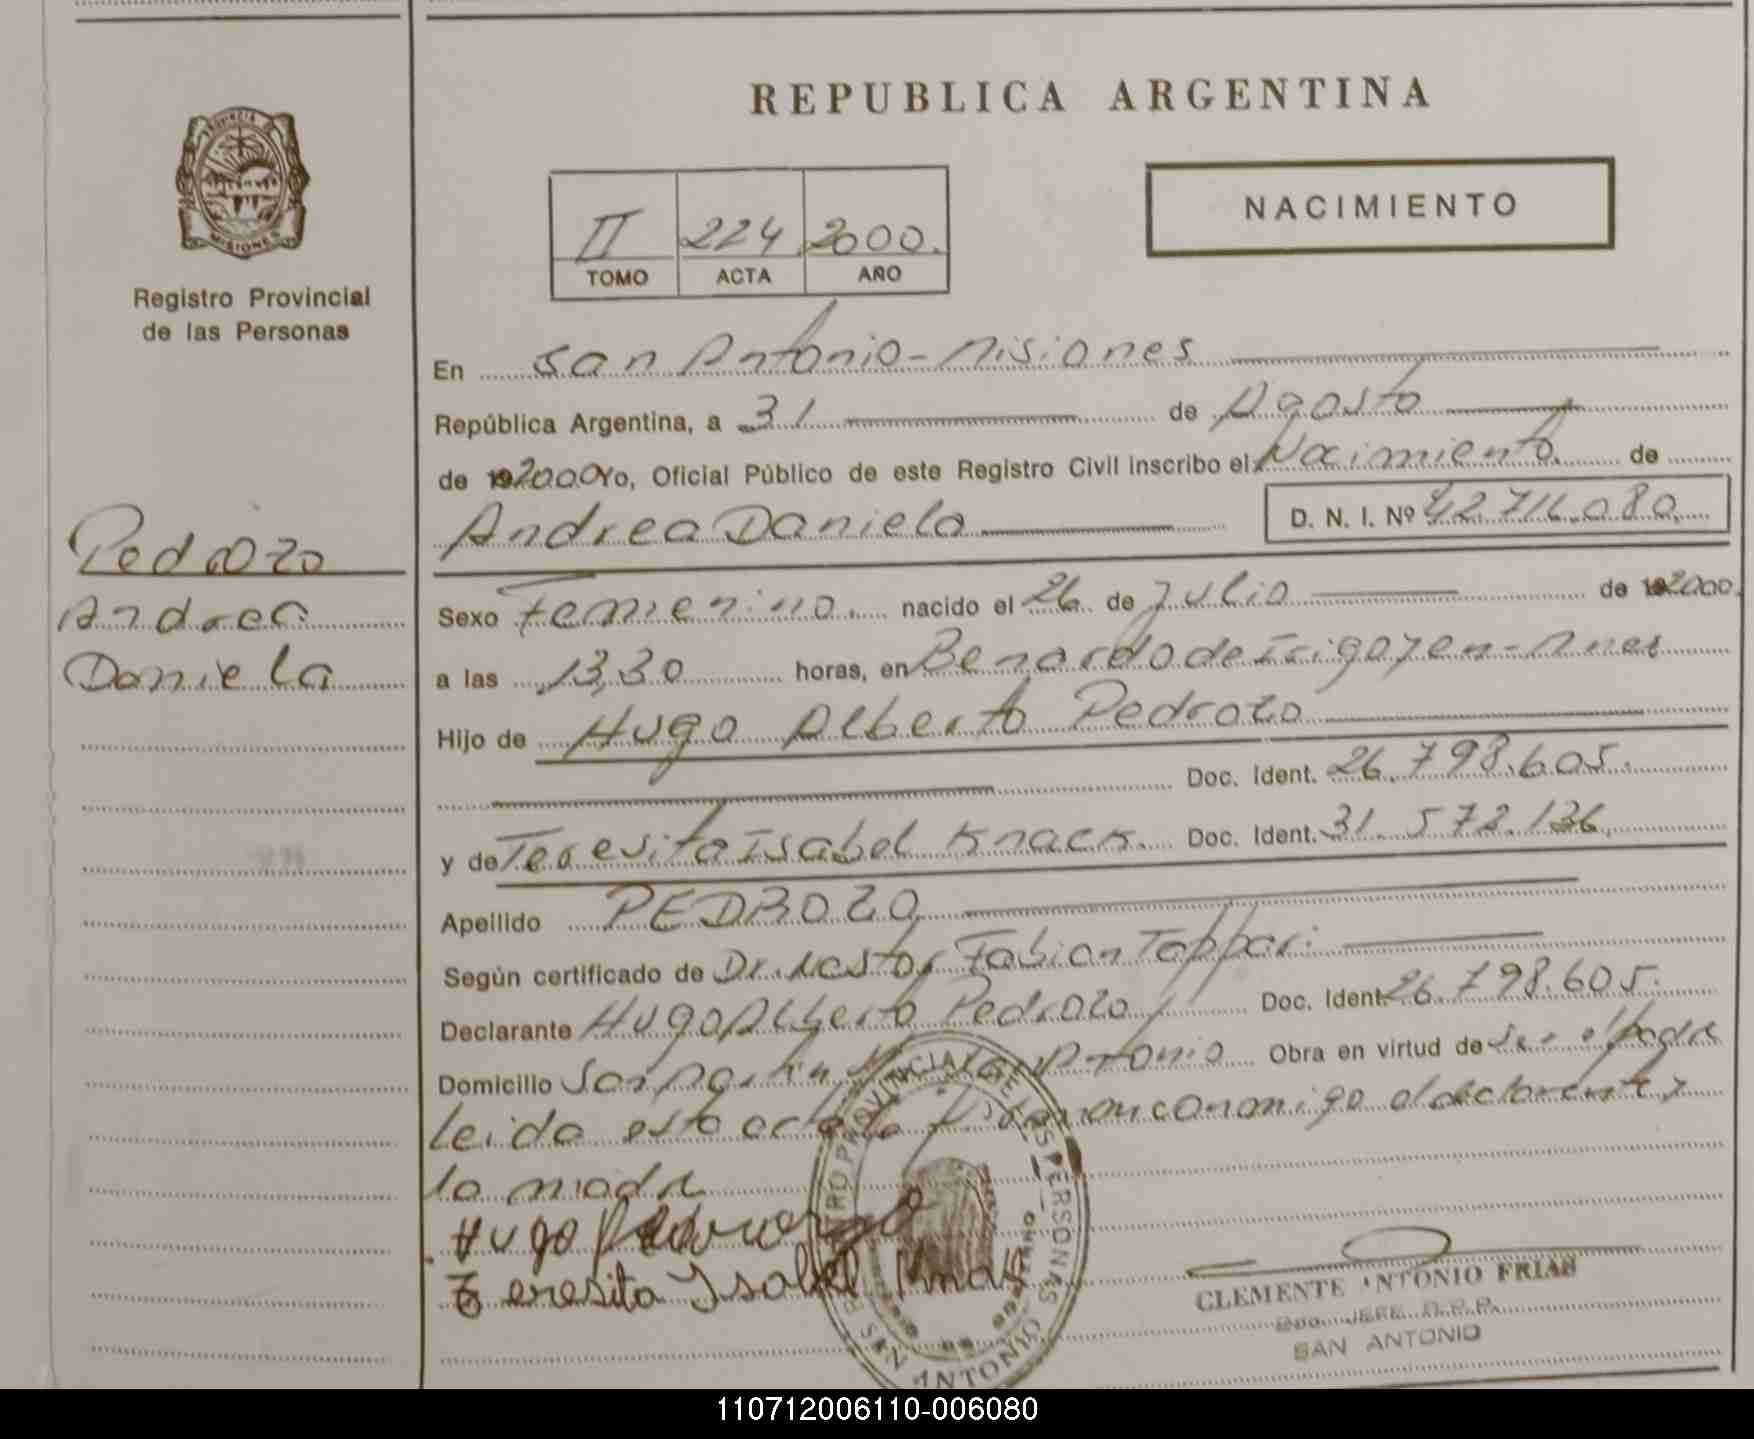 REPUBLICA ARGENTINA
PROVINCIA DE
MISIONES
Registro Provincial
de las Personas
NACIMIENTO
II 224 2000.
TOMO ACTA AÑO
En San Antonio - Misiones
República Argentina, a 31 de Agosto
de 2000 Yo, Oficial Público de este Registro Civil inscribo el Nacimiento de
Andrea Daniela D. N. I. Nº 42.714.080
Pedrozo
Andrea
Daniela
Sexo Femenino. nacido el 26 de Julio de 2000.
a las 13,30 horas, en Bernardo de Irigoyen - Mnes
Hijo de Hugo Alberto Pedrozo
Doc. Ident. 26.798.605.
y de Teresita Isabel Knack. Doc. Ident. 31.572.136
Apellido PEDROZO
Según certificado de Dr. Nestor Fabian Tappari
Declarante Hugo Alberto Pedrozo Doc. Ident. 26.798.605.
Domicilio San Antonio Obra en virtud de ser el padre
Leida esta acta la firman conmigo el declarante y
la madre
Hugo Pedrozo
Teresita Ysabel Knack
REGISTRO PROVINCIAL DE LAS PERSONAS
SAN ANTONIO
CLEMENTE ANTONIO FRIAS
JEFE R.P.P.
SAN ANTONIO
110712006110-006080